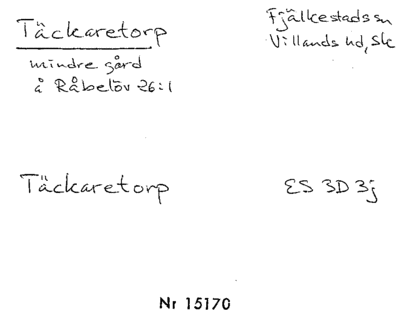 Täckaretorp
Fjälkestads sn
Villands hd, Sk
mindre gård
å Råbelöv 26:1
Täckaretorp
ES 3D 3j
Nr 15170